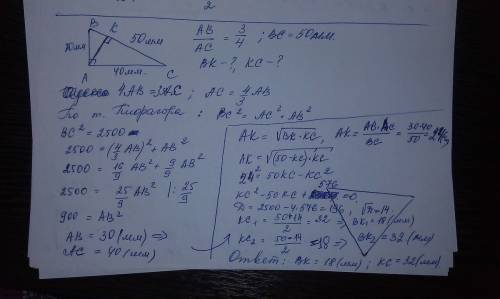 2
B
K
30мм
50мм
A
40мм.
C
AB/AC = 3/4 ; BC=50мм.
BK-?, KC-?
4AB=3AC; AC = 4/3 AB
По т. Пифагора: BC² = AC² + AB²
BC² = 2500
2500 = (4/3 AB)² + AB²
2500 = 16/9 AB² + 9/9 AB²
2500 = 25/9 AB² |: 25/9
900 = AB²
AB = 30 (мм) =>
AC = 40 (мм)
AK = √BK·KC, AK = AB·AC/BC = 30·40/50 = 24
AK = √(50-KC)·KC
24² = 50KC-KC²
KC² - 50KC + 576 = 0.
D = 2500 - 4·576 = 196, √D = 14.
KC₁ = 50+14/2 = 32 => BK₁ = 18 (мм)
KC₂ = 50-14/2 = 18 => BK₂ = 32 (мм)
Ответ: BK = 18 (мм); KC = 32 (мм).